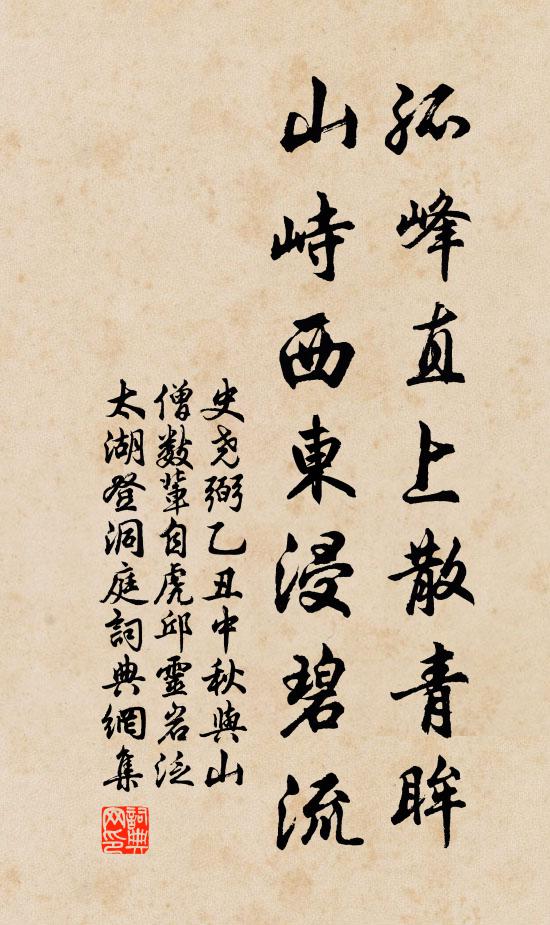 孤峰直上散青眸
山峙西東浸碧流
史尧弼乙丑中秋與山
僧數輩自虎邱靈岩泛
太湖登洞庭詞典網集
詞典
网印